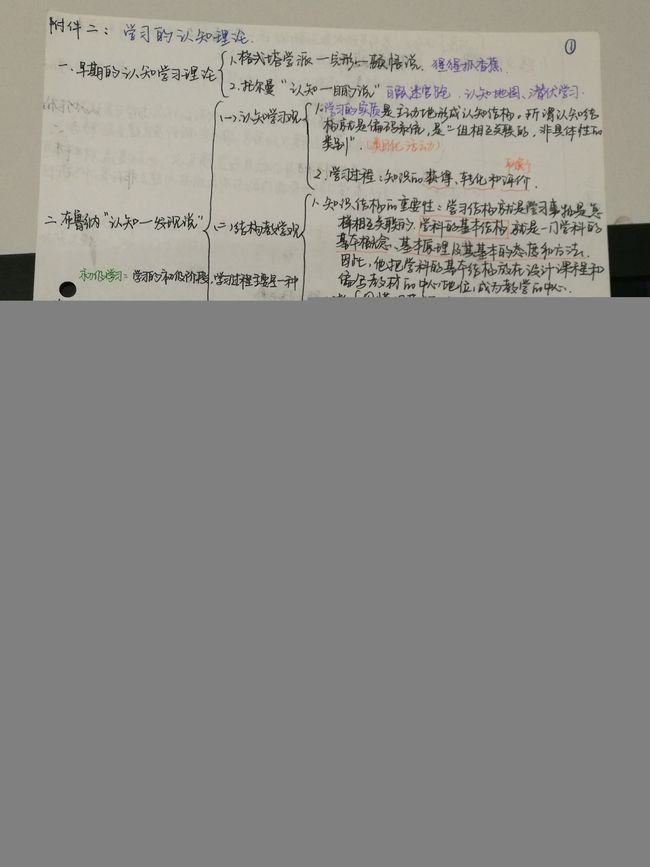 附件二：学习的认知理论.
①
一.早期的认知学习理论
1.格式塔学派—完形—顿悟说. 猩猩抓香蕉.
2.托尔曼"认知—目的说" 白鼠迷宫跑.认知地图、潜伏学习.
二.布鲁纳"认知—发现说"
(一)认知学习观
1.学习的实质是主动地形成认知结构，所谓认知结
构就是编码系统，是"一组相互关联的，非具体性的
类别"。(类目化活动)
2.学习过程：知识的获得、转化和评价.
(二)结构教学观
1.知识结构的重要性：学习结构就是学习事物是怎
样相互关联的.学科的基本结构就是一门学科的
基本概念、基本原理及其基本的态度和方法.
因此，他把学科的基本结构放在设计课程和
编写教材的中心地位，成为教学的中心.
初级学习：学习的初级阶段，学习过程主要是一种